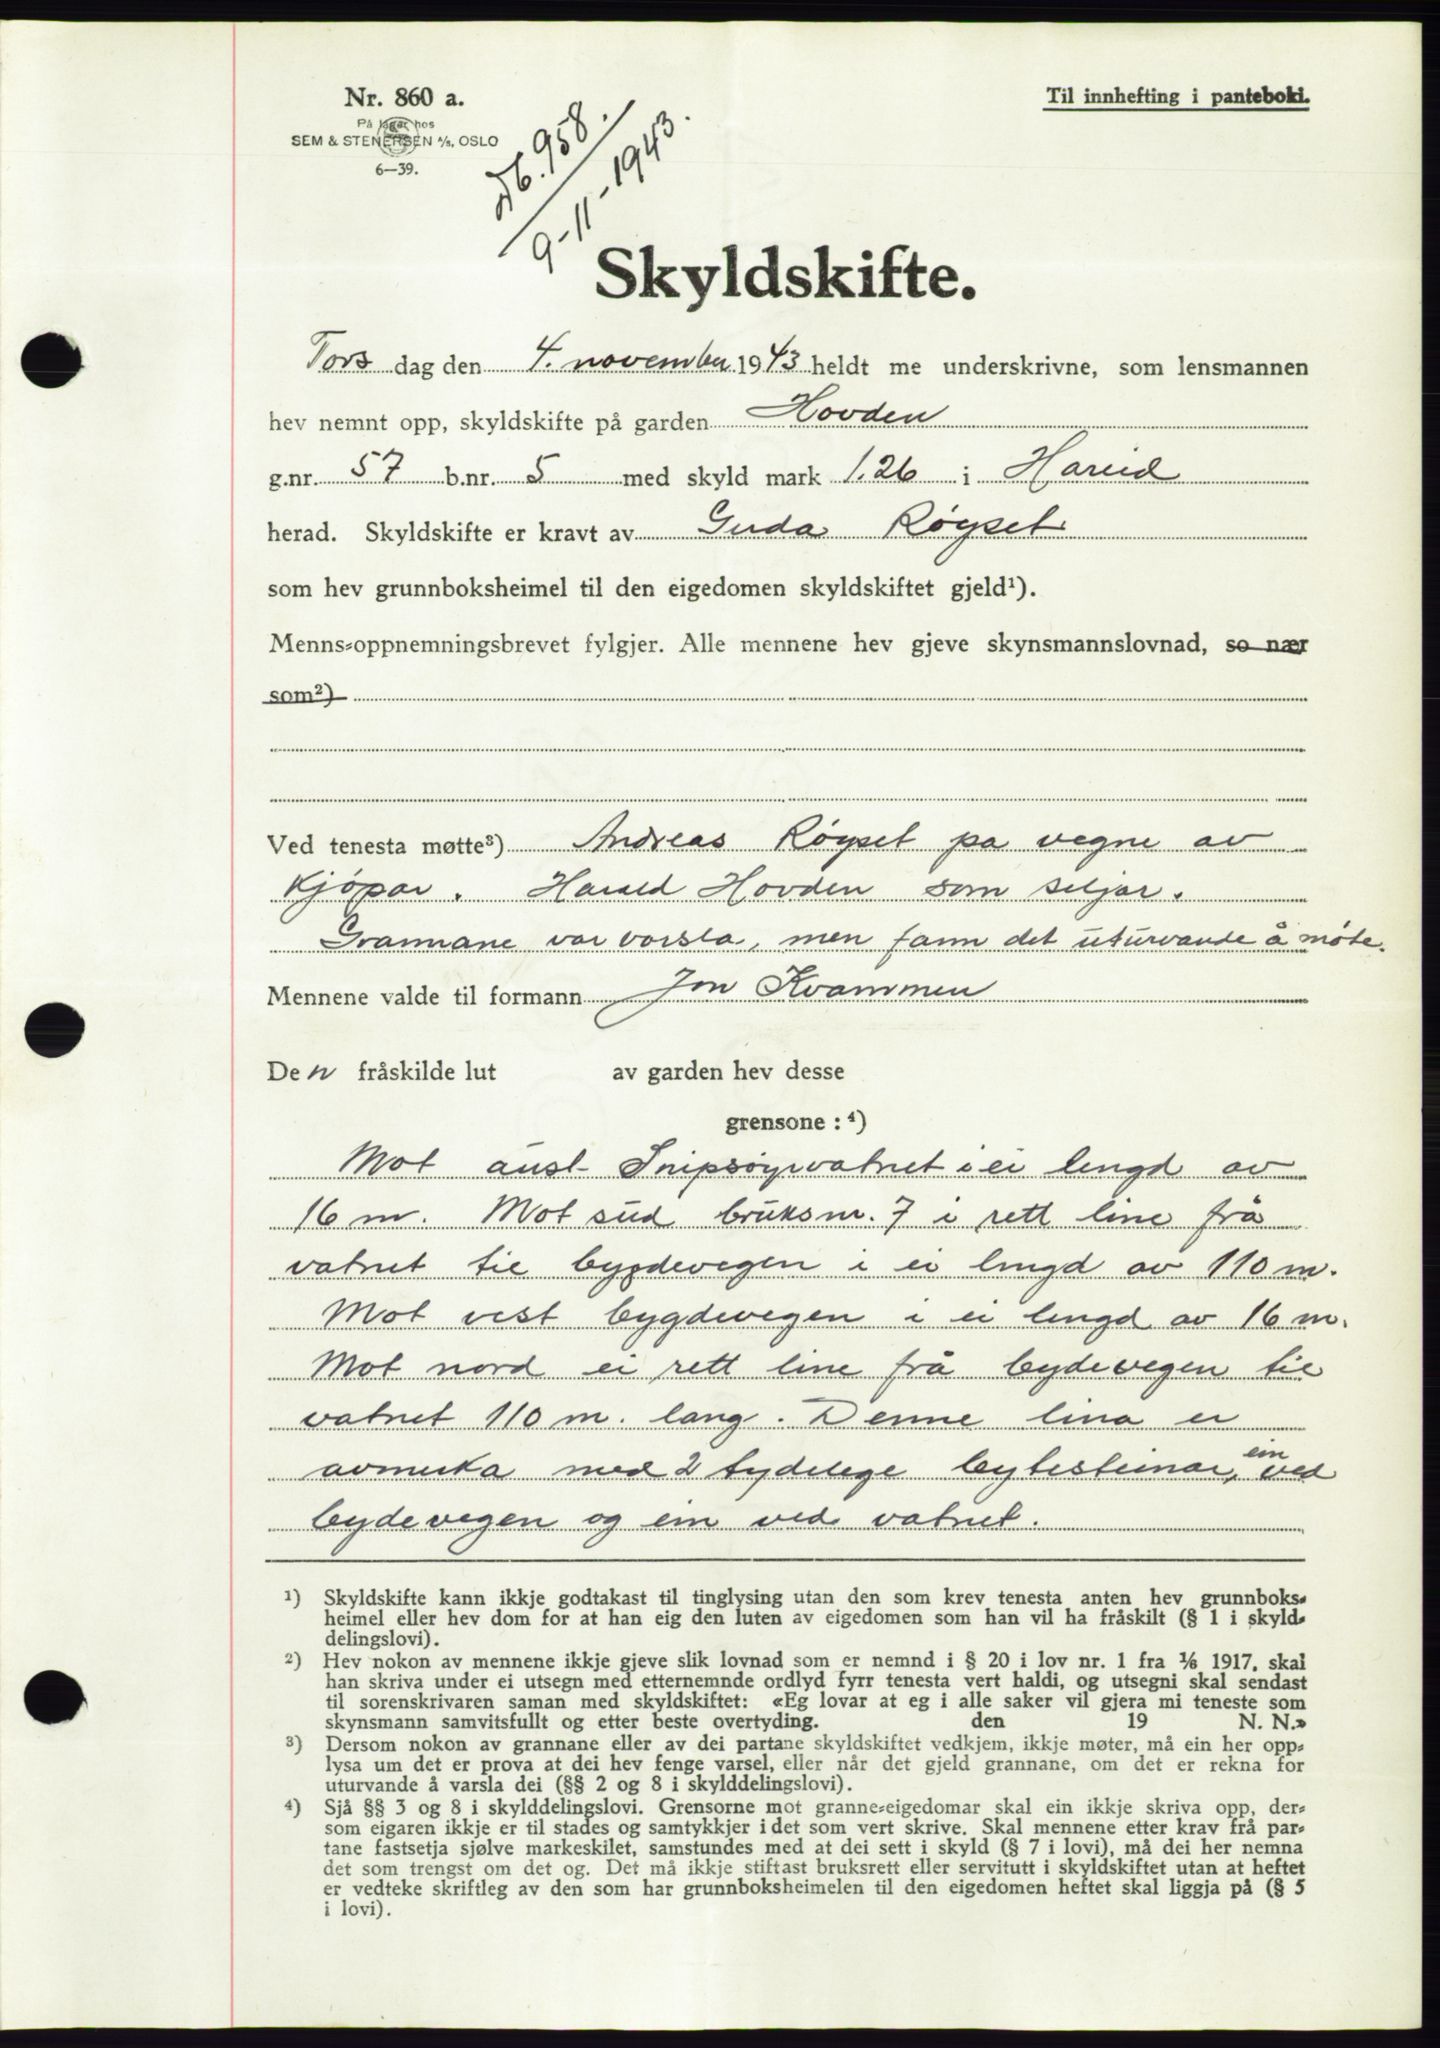 Nr. 860 a.
På lager hos
SEM & STENERSEN A/S, OSLO
6—39.
Til innhefting i panteboki.
Db. 958.
9-11-1943.
Skyldskifte.
Tors dag den 4. november 1943 heldt me underskrivne, som lensmannen
hev nemnt opp, skyldskifte på garden Hovden
g.nr. 57 b.nr. 5 med skyld mark 1.26 i Hareid
herad. Skyldskifte er kravt av Guda Røyset
som hev grunnboksheimel til den eigedomen skyldskiftet gjeld¹).
Menns-oppnemningsbrevet fylgjer. Alle mennene hev gjeve skynsmannslovnad, so nær
som²)
Ved tenesta møtte³) Andreas Røyset pa vegne av
kjøpar. Harald Hovden som seljar.
Grannane var varsla, men fann det uturvande å møte.
Mennene valde til formann Jon Kvammen
Den fråskilde lut av garden hev desse
grensone : ⁴)
Mot aust Snipsøyrvatnet i ei lengd av
16 m. Mot sud bruksnr. 7 i rett line frå
vatnet til bygdevegen i ei lengd av 110 m.
Mot vest bygdevegen i ei lengd av 16 m.
Mot nord ei rett line frå bydevegen til
vatnet 110 m. lang. Denne lina er
avmerka med 2 tydelege bytesteinar, ein ved
bydevegen og ein ved vatnet.
¹) Skyldskifte kann ikkje godtakast til tinglysing utan den som krev tenesta anten hev grunnboks-
heimel eller hev dom for at han eig den luten av eigedomen som han vil ha fråskilt (§ 1 i skyld-
delingslovi).
²) Hev nokon av mennene ikkje gjeve slik lovnad som er nemnd i § 20 i lov nr. 1 fra 1/6 1917, skal
han skriva under ei utsegn med etternemnde ordlyd fyrr tenesta vert haldi, og utsegni skal sendast
til sorenskrivaren saman med skyldskiftet: «Eg lovar at eg i alle saker vil gjera mi teneste som
skynsmann samvitsfullt og etter beste overtyding. den 19 N. N.»
³) Dersom nokon av grannane eller av dei partane skyldskiftet vedkjem, ikkje møter, må ein her opp-
lysa um det er prova at dei hev fenge varsel, eller når det gjeld grannane, om det er rekna for
uturvande å varsla dei (§§ 2 og 8 i skylddelingslovi).
⁴) Sjå §§ 3 og 8 i skylddelingslovi. Grensorne mot granne-eigedomar skal ein ikkje skriva opp, der-
som eigaren ikkje er til stades og samtykkjer i det som vert skrive. Skal mennene etter krav frå par-
tane fastsetja sjølve markeskilet, samstundes med at dei sett i skyld (§ 7 i lovi), må dei her nemna
det som trengst om det og. Det må ikkje stiftast bruksrett eller servitutt i skyldskiftet utan at heftet
er vedteke skriftleg av den som har grunnboksheimelen til den eigedomen heftet skal liggja på (§ 5
i lovi).